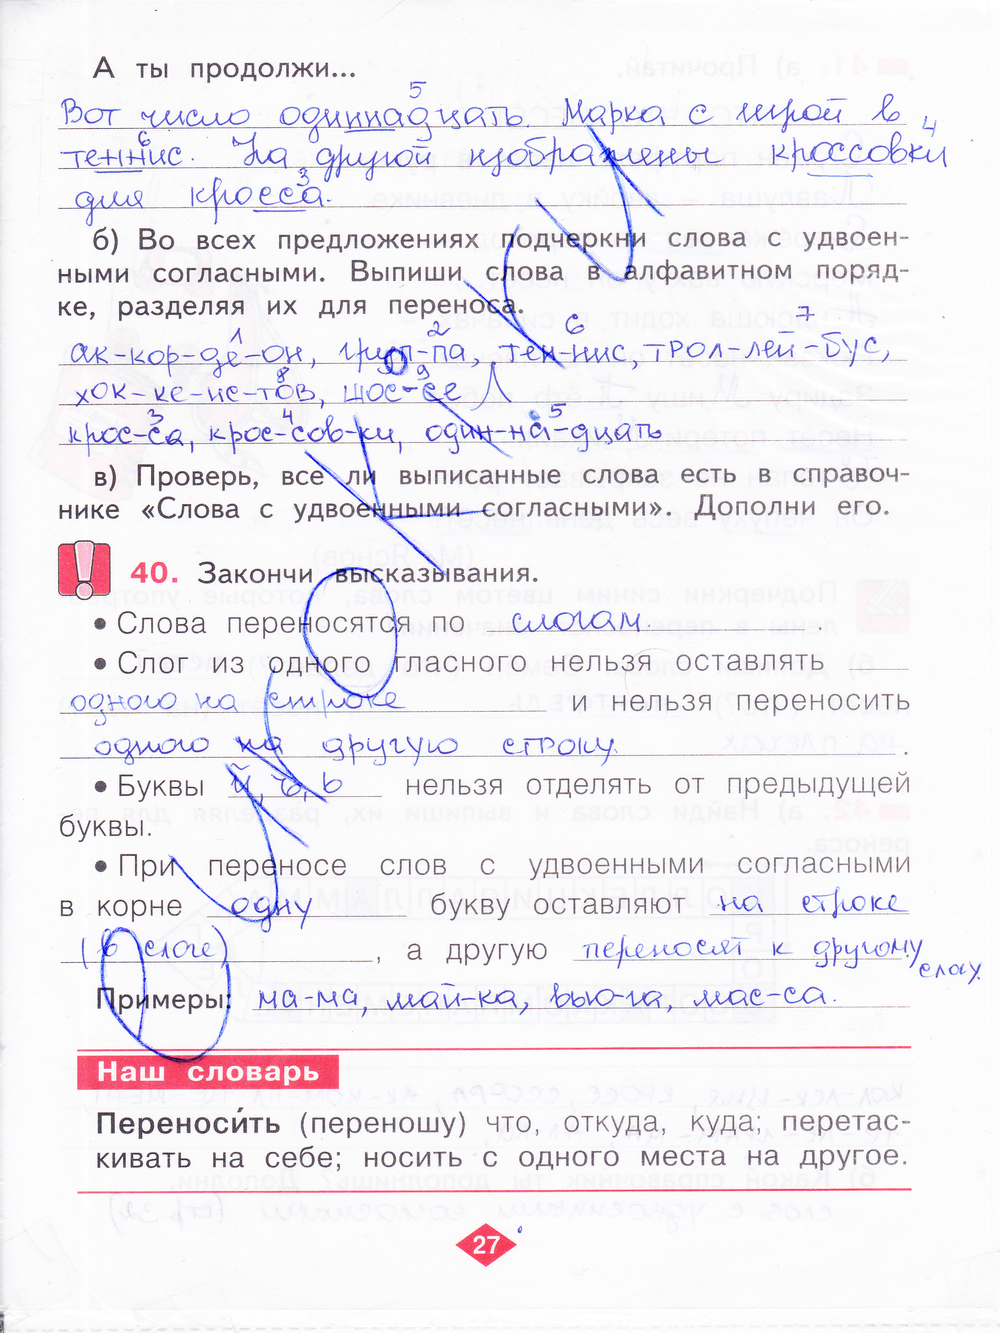 А ты продолжи...
5
Вот число одиннадцать. Марка с игрой в
6 4
теннис. На другой изображены кроссовки
3
для кросса.
б) Во всех предложениях подчеркни слова с удвоен-
ными согласными. Выпиши слова в алфавитном поряд-
ке, разделяя их для переноса.
1 2 6 7
ак-кор-де-он, груп-па, тен-нис, трол-лей-бус,
8 9
хок-ке-ис-тов, шос-се
3 4 5
крос-са, крос-сов-ки, один-на-дцать
в) Проверь, все ли выписанные слова есть в справоч-
нике «Слова с удвоенными согласными». Дополни его.
40. Закончи высказывания.
• Слова переносятся по слогам.
• Слог из одного гласного нельзя оставлять
одного на строке и нельзя переносить
одного на другую строку.
• Буквы й, ъ, ь нельзя отделять от предыдущей
буквы.
• При переносе слов с удвоенными согласными
в корне одну букву оставляют на строке
(в слоге), а другую переносят к другому
слогу.
Примеры: ма-ма, май-ка, вью-га, мас-са.
Наш словарь
Переноси́ть (переношу) что, откуда, куда; перетас-
кивать на себе; носить с одного места на другое.
27